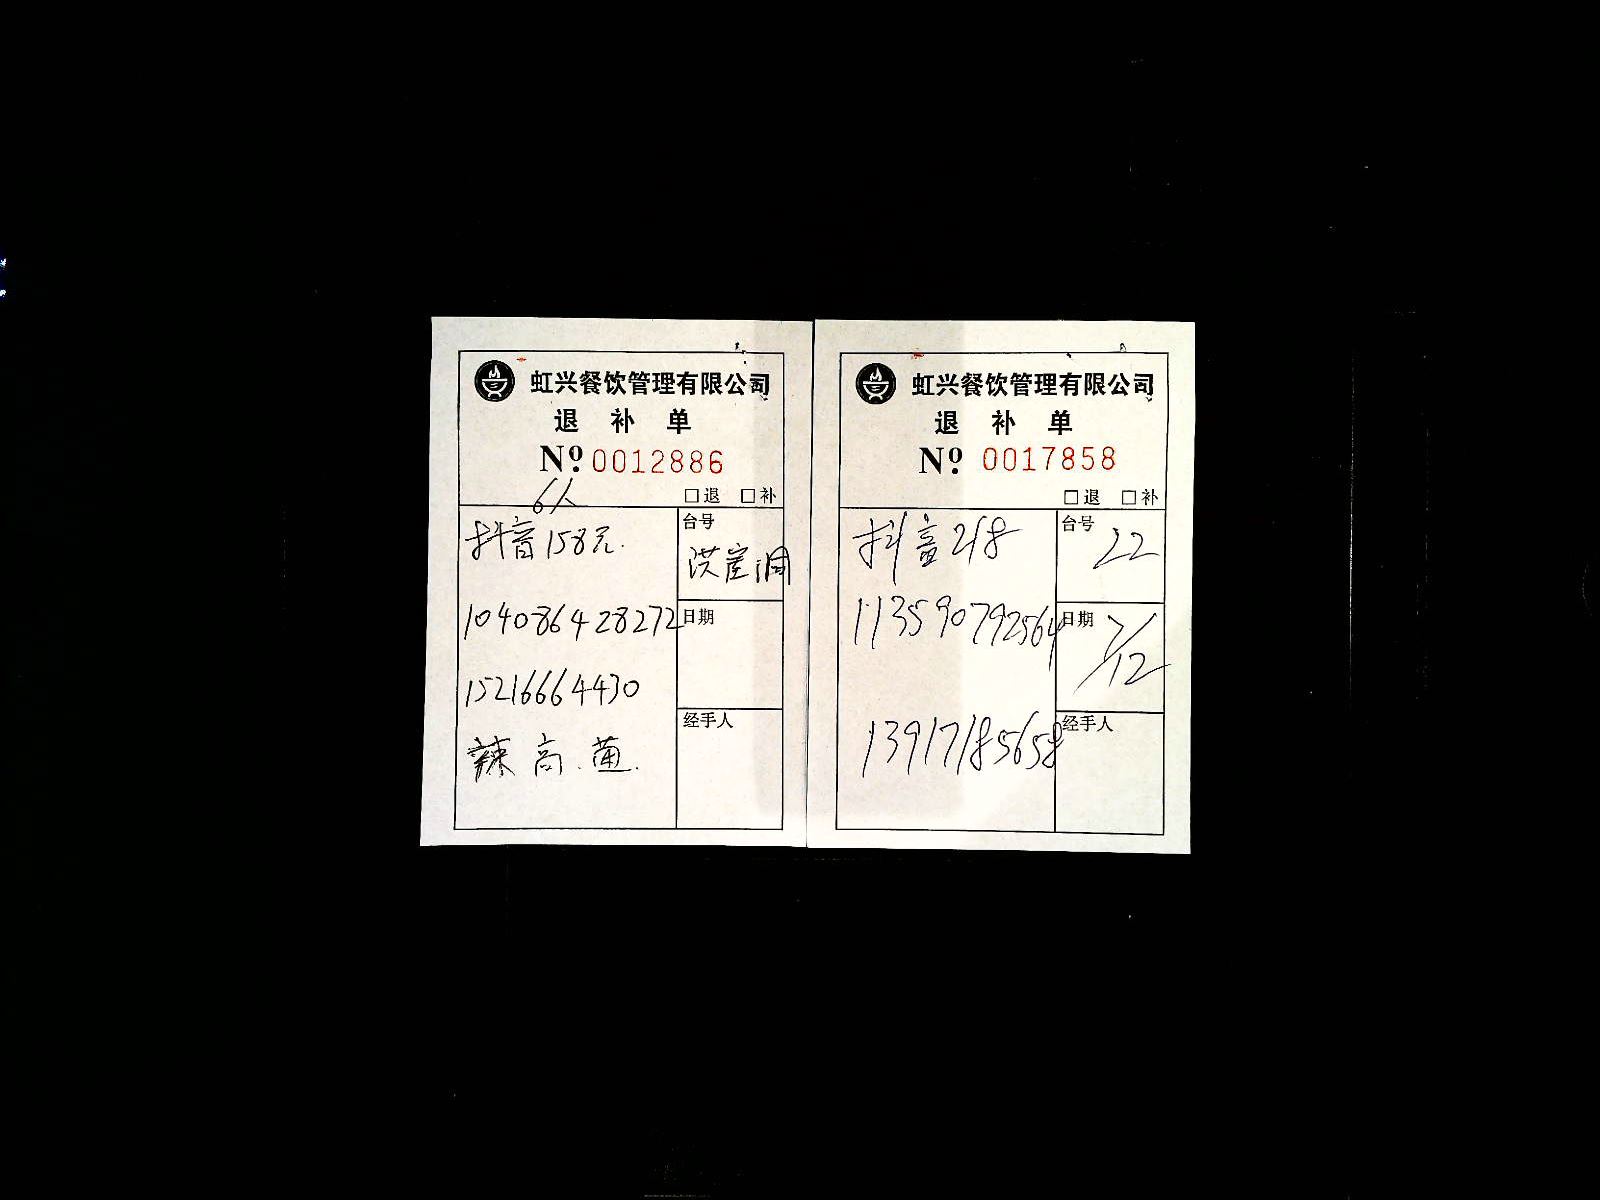 虹兴餐饮管理有限公司
退 补 单
Nº 0012886
6人
□退 □补
抖音158元.
台号
洪崖洞
104086428272
日期
15216664430
经手人
辣 高.
虹兴餐饮管理有限公司
退 补 单
Nº 0017858
□退 □补
抖音218
台号
22
113590792564
日期
7/12
13917185658
经手人